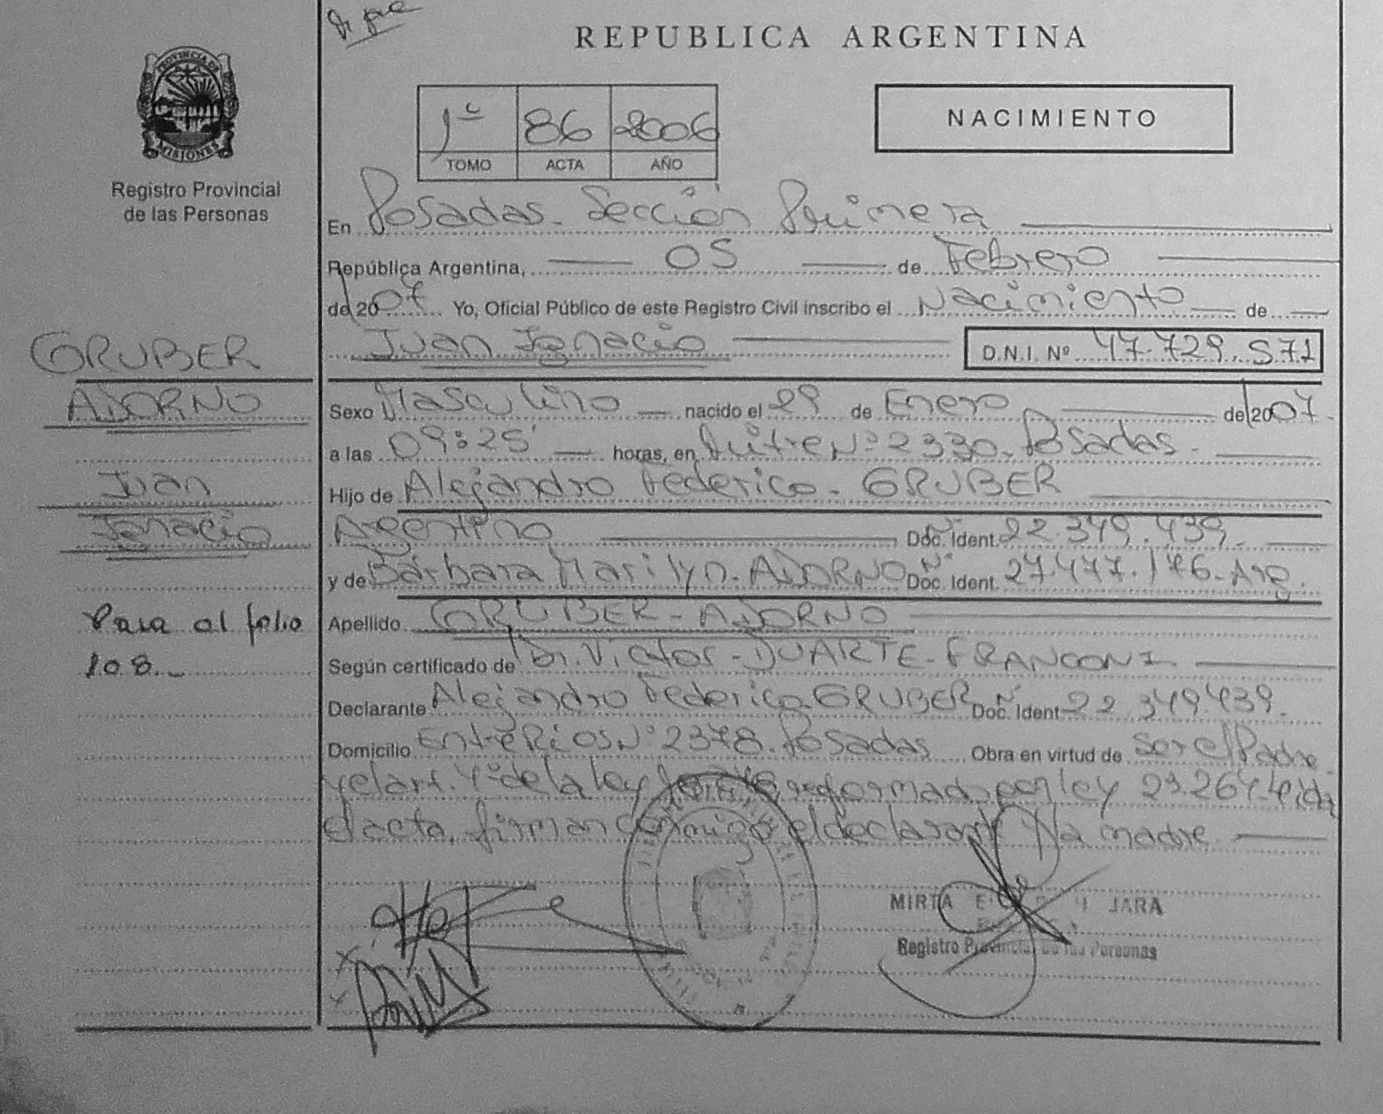 REPUBLICA ARGENTINA
PROVINCIA DE
MISIONES
Registro Provincial
de las Personas
1º 86 2006
TOMO ACTA AÑO
NACIMIENTO
En Posadas. Sección Primera
República Argentina, 05 de Febrero
de 2007 Yo, Oficial Público de este Registro Civil inscribo el Nacimiento de
Juan Ignacio D.N.I. Nº 47.729.571
GRUBER
ADORNO
Juan
Ignacio
Para al folio
108.-
Sexo Masculino nacido el 29 de Enero de 2007.
a las 09:25' horas, en Mitre Nº 2330. Posadas.
Hijo de Alejandro Federico - GRUBER
Argentino Nº Doc. Ident. 22.349.439.
y de Bárbara Marilyn. ADORNO Nº Doc. Ident. 27.477.176-Arg.
Apellido GRUBER - ADORNO
Según certificado de Dr. Victor - DUARTE - FRANCONI
Declarante Alejandro Federico GRUBER Nº Doc. Ident. 22 349439.
Domicilio Entre Rios Nº 2378. Posadas Obra en virtud de Ser el Padre
y el art. 1º de la ley reformado por ley 23.264. Leida
el acta, firman conmigo el declarante y la madre
MIRTA JARA
Registro Provincial de las Personas